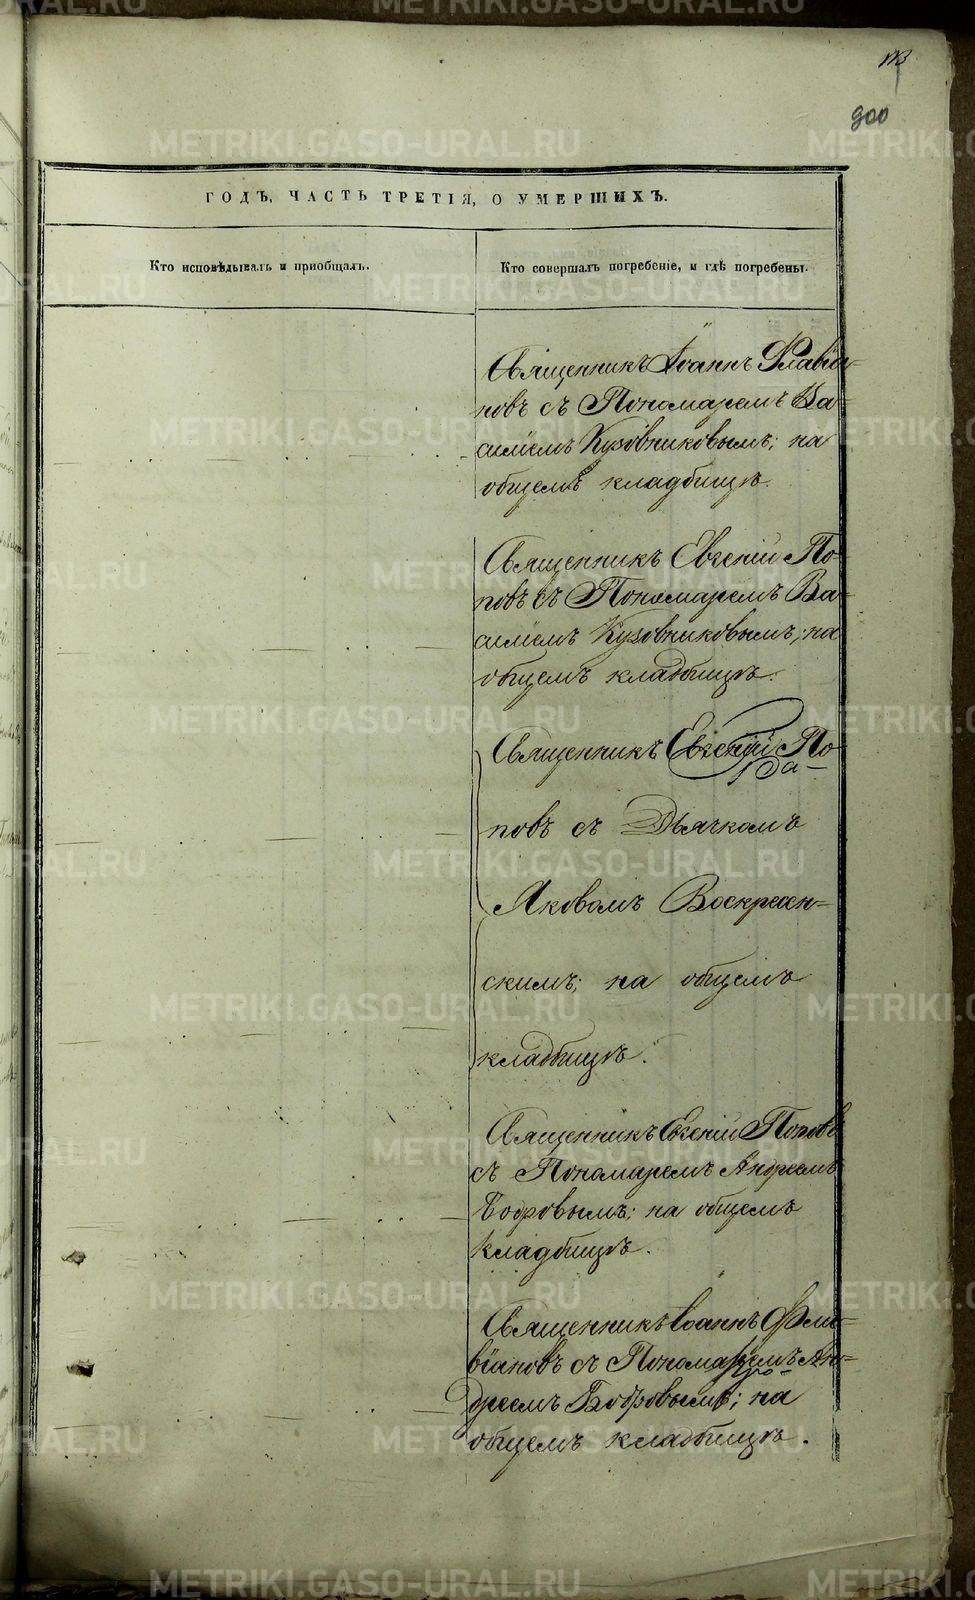 900
ГОДЪ, ЧАСТЬ ТРЕТІЯ, О УМЕРШИХЪ.
Кто исповѣдывалъ и пріобщалъ.
Кто совершалъ погребеніе, и гдѣ погребены.
Священникъ Іоаннъ Флавіа-
новъ съ Пономаремъ Ва-
силіемъ Кузовниковымъ; на
общемъ кладбищѣ.
Священникъ Евгеній По-
повъ съ Пономаремъ Ва-
силіемъ Кузовниковымъ; на
общемъ кладбищѣ.
Священникъ Евгеній По-
повъ съ Дьячкомъ
Яковомъ Воскресен-
скимъ; на общемъ
кладбищѣ.
Священникъ Евгеній Поповъ
съ Пономаремъ Андреемъ
Бобровымъ; на общемъ
кладбищѣ.
Священникъ Іоаннъ Фла-
віановъ съ Пономаремъ Ан-
дреемъ Бобровымъ; на
общемъ кладбищѣ.
METRIKI.GASO-URAL.RU